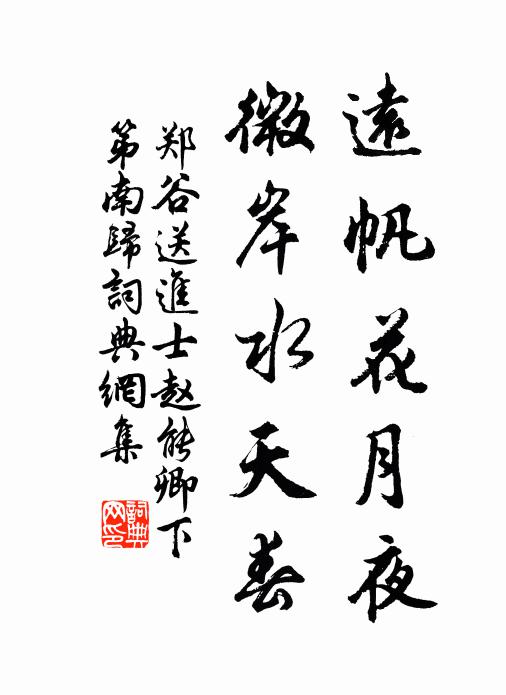 遠帆花月夜
微岸水天春
郑谷送進士赵能卿下
第南歸詞典網集
詞典
网印